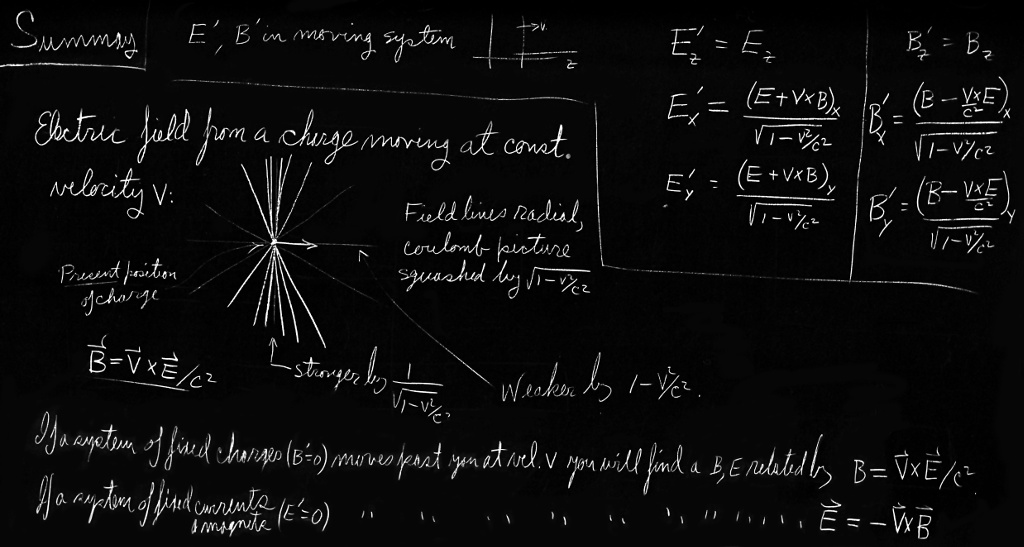 Summary
E', B' in moving system
v
z
E'z = Ez
E'x = (E + v×B)x / √1 − v²/c²
E'y = (E + v×B)y / √1 − v²/c²
B'z = Bz
B'x = (B − v×E/c²)x / √1 − v²/c²
B'y = (B − v×E/c²)y / √1 − v²/c²
Electric field from a charge moving at const.
velocity v:
Field lines radial,
coulomb picture
squashed by √1 − v²/c²
Present position
of charge
B⃗ = v⃗ × E⃗/c²
stronger by 1/√1 − v²/c²
Weaker by 1 − v²/c².
If a system of fixed charges (B'=0) moves past you at vel. v you will find a B, E related by B = v⃗×E⃗/c²
If a system of fixed currents & magnets (E'=0) " " " " " " " " " " " E⃗ = −v⃗×B⃗